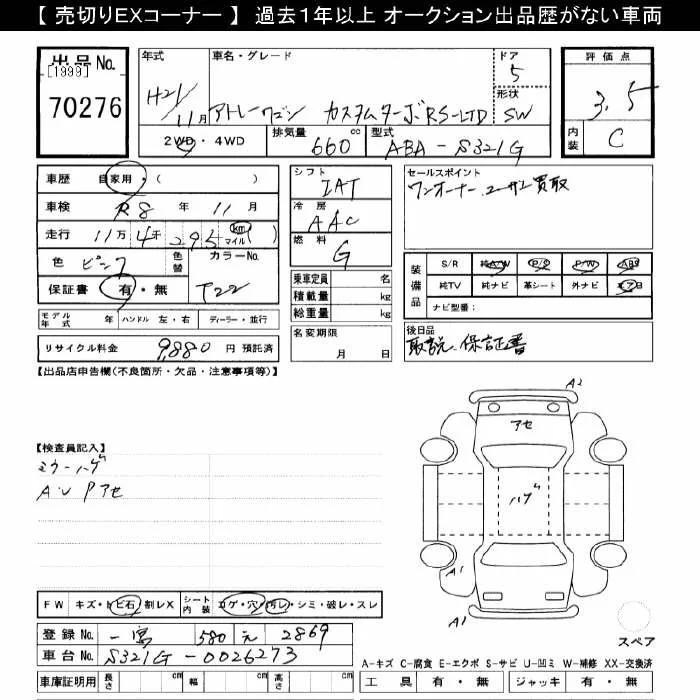 【 売切りEXコーナー 】 過去1年以上 オークション出品歴がない車両
出品No. [1999] 70276
年式 車名・グレード ドア 5
H21/11月 アトレーワゴン カスタムターボRS-LTD 形状 SW
2WD・4WD 排気量 660 cc 型式 ABA-S321G
評価点 3.5
内装 C
車歴 自家用・( )
車検 R8 年 11 月
走行 11万4千295 km マイル( )
色 ピンク 色替 カラーNo. T22
保証書 有・無
モデル年式 年 ハンドル 左・右 ディーラー・並行
リサイクル料金 9,880 円 預託済
シフト IAT
冷房 AAC
燃料 G
乗車定員 名
積載量 kg
総重量 kg
名変期限 月 日
セールスポイント
ワンオーナー、ユーザー買取
装備品 S/R 純A/W P/S P/W ABS
純TV 純ナビ 革シート 外ナビ エアB
ナビ型番:
後日品
取説、保証書
【出品店申告欄(不良箇所・欠品・注意事項等)】
【検査員記入】
ミラーハゲ
A・U Pアセ
A2
アセ
ハゲ
A1
A1
スペア
FW キズ・トビ石・割レX シート内装 コゲ・穴・汚レ・シミ・破レ・スレ
登録No. 一宮 580 え 2869
車台No. S321G-0026273
車庫証明用 長さ cm 幅 cm 高さ cm
A-キズ C-腐食 E-エクボ S-サビ U-凹ミ W-補修 XX-交換済
工具 有・無 ジャッキ 有・無